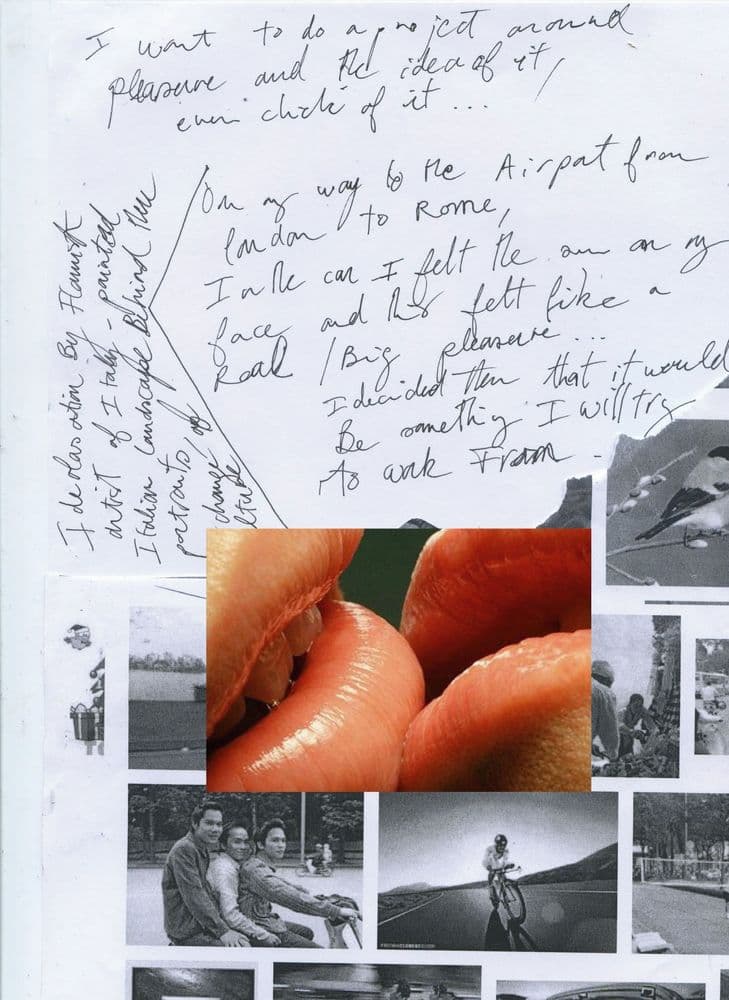 I want to do a project around
pleasure and the idea of it,
even cliché of it ...
On my way to the Airport from
london to Rome,
In the car I felt the sun on my
face and this felt like a
Real / Big pleasure ...
I decided then that it would
Be something I will try
to work From .
By Flamish
artist of Italy - painted
Italian landscape Behind
portraits,
change